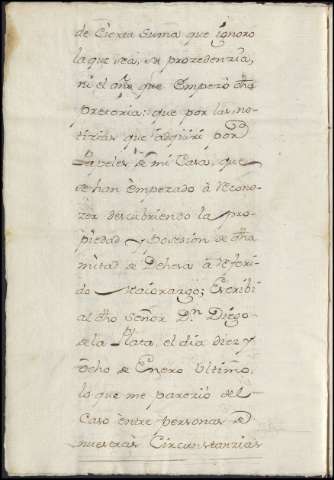 de Cierta Suma que ignoro
la que sea, su prozedenzia,
ni el año que Empezó dha
pretoria: que por las no-
tizias que adquiri por
Papeles de mi Casa, que
se han empezado à reCono-
zer descubriendo la pro-
piedad y posesion de dha
mitad de Dehesa à referi-
do Maiorazgo; Escribi
al dho Señor Dn. Diego
de la Plata, el dia diez y
ocho de Enero ultimo,
lo que me parezió del
Caso entre personas de
nuestras Circunstanzias